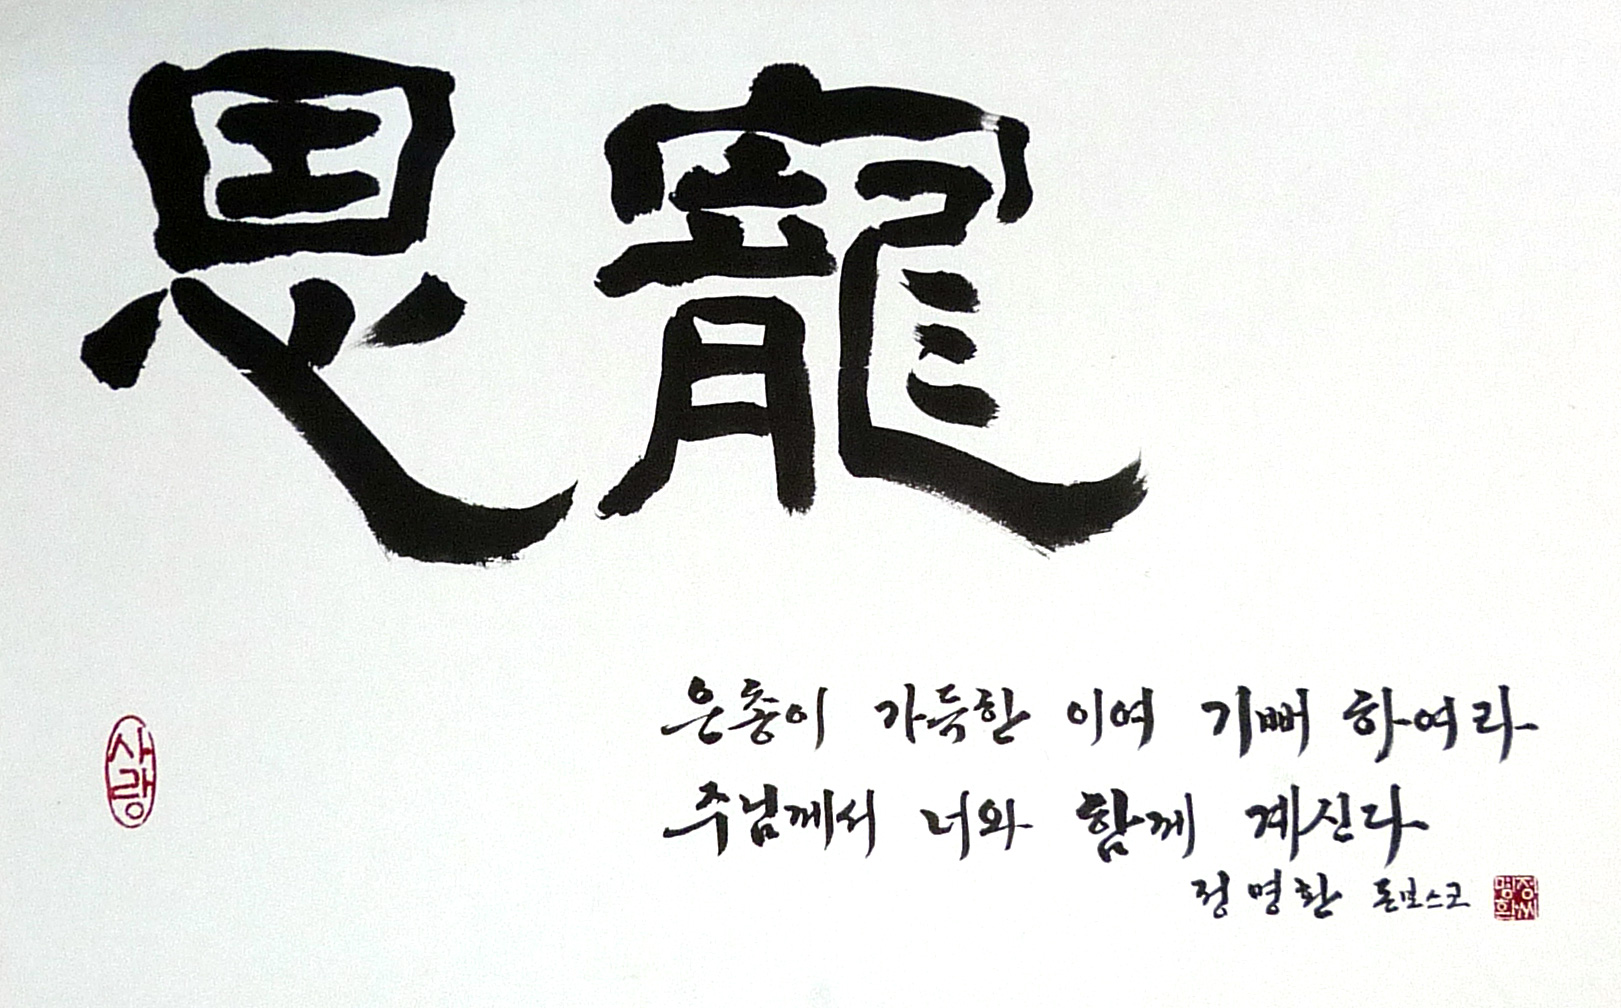 恩寵
은총이 가득한 이여 기뻐 하여라
주님께서 너와 함께 계신다
정명환 돈보스코
사랑
정씨명환